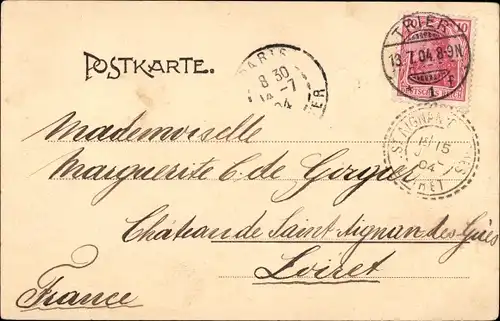 POSTKARTE.
PARIS
8 30
14 -7
04
TRIER
13.7.04.8-9N
* 1 f
10
DEUTSCHES REICH
ST AIGNAN
15
04
Mademoiselle
Marguerite C. de
Château de Saint Aignan des Gués
Loiret
France